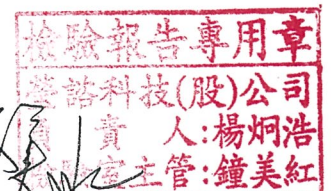 檢驗報告專用章
諮科技(股)公司
責人:楊炯浩
室主管:鐘美紅